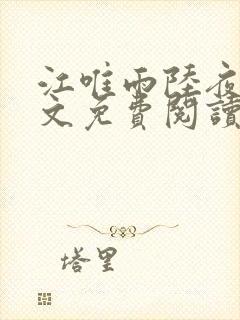 江唯雨陸夜
文免費閱讀
塔里